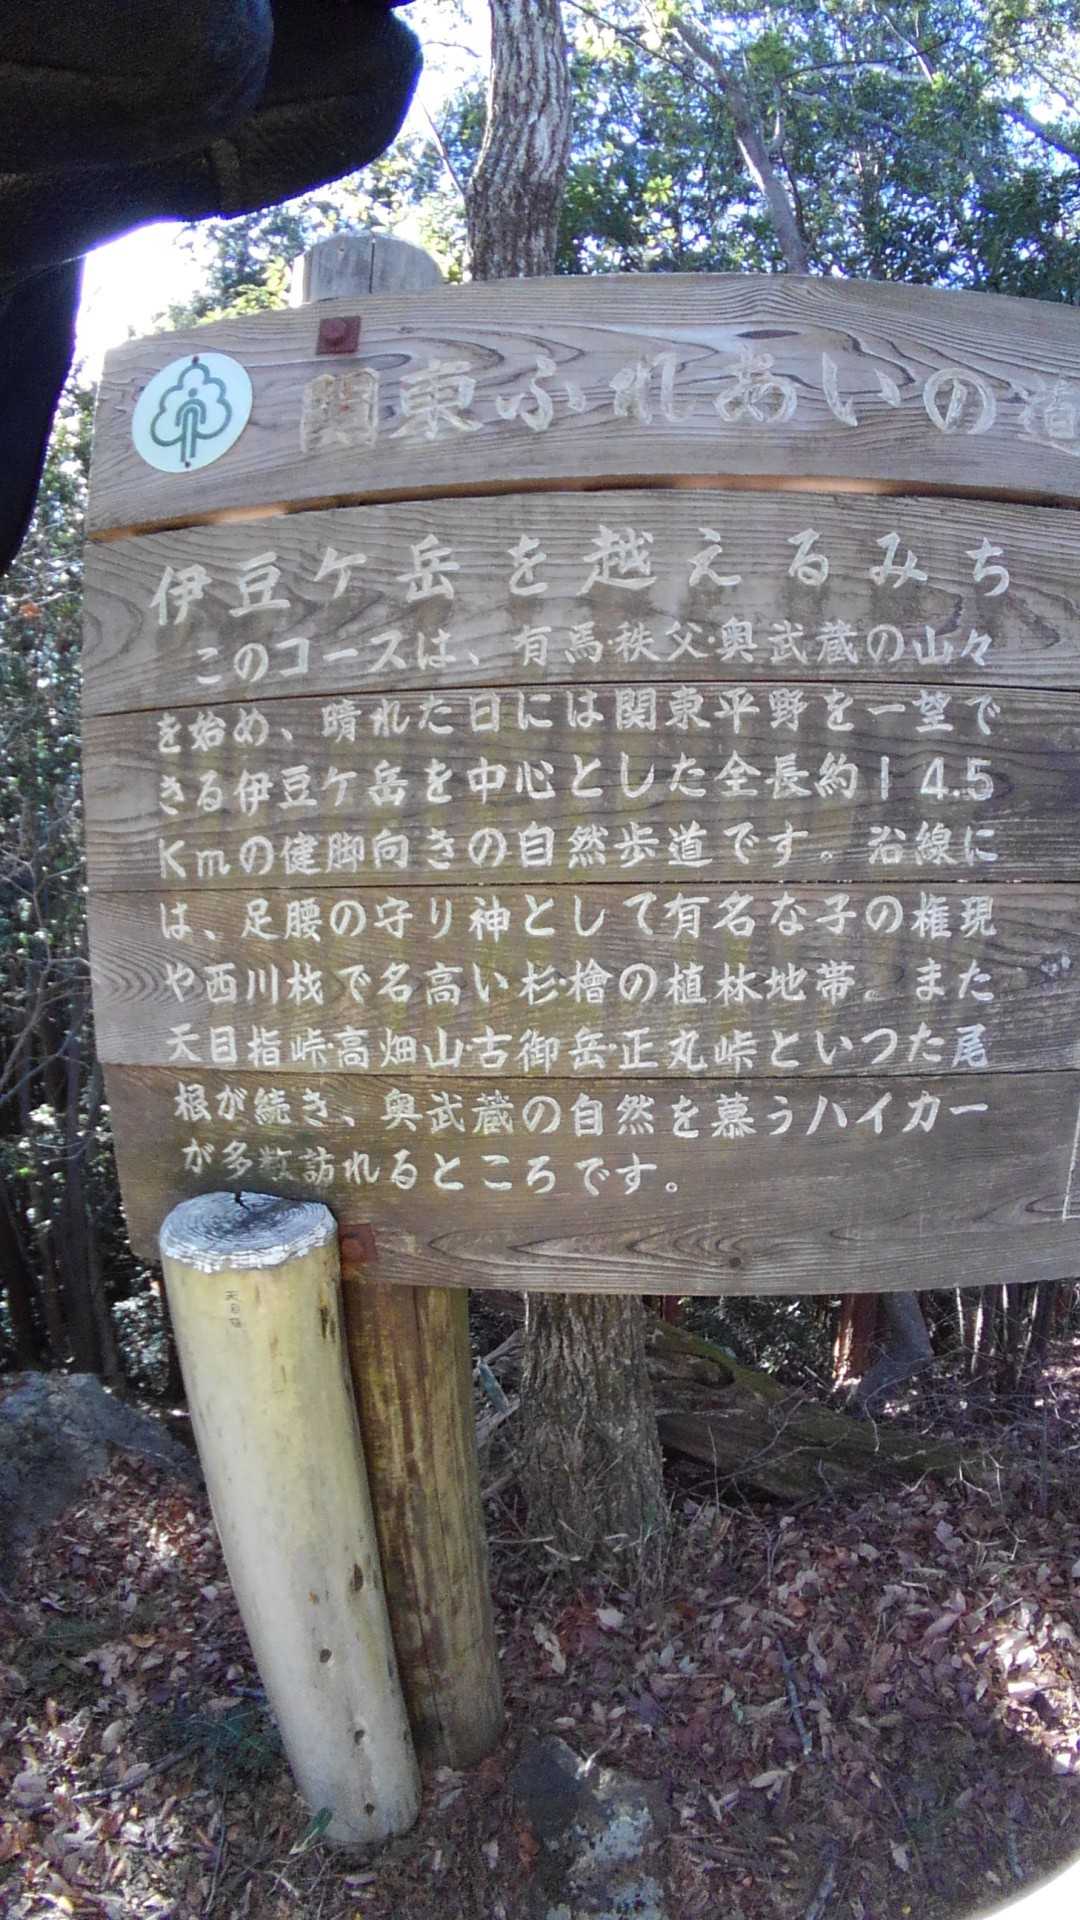 関東ふれあいの道
伊豆ケ岳を越えるみち
このコースは、有馬・秩父・奥武蔵の山々
を始め、晴れた日には関東平野を一望で
きる伊豆ケ岳を中心とした全長約14.5
Kmの健脚向きの自然歩道です。沿線に
は、足腰の守り神として有名な子の権現
や西川材で名高い杉・檜の植林地帯。また
天目指峠・高畑山・古御岳・正丸峠といつた尾
根が続き、奥武蔵の自然を慕うハイカー
が多数訪れるところです。